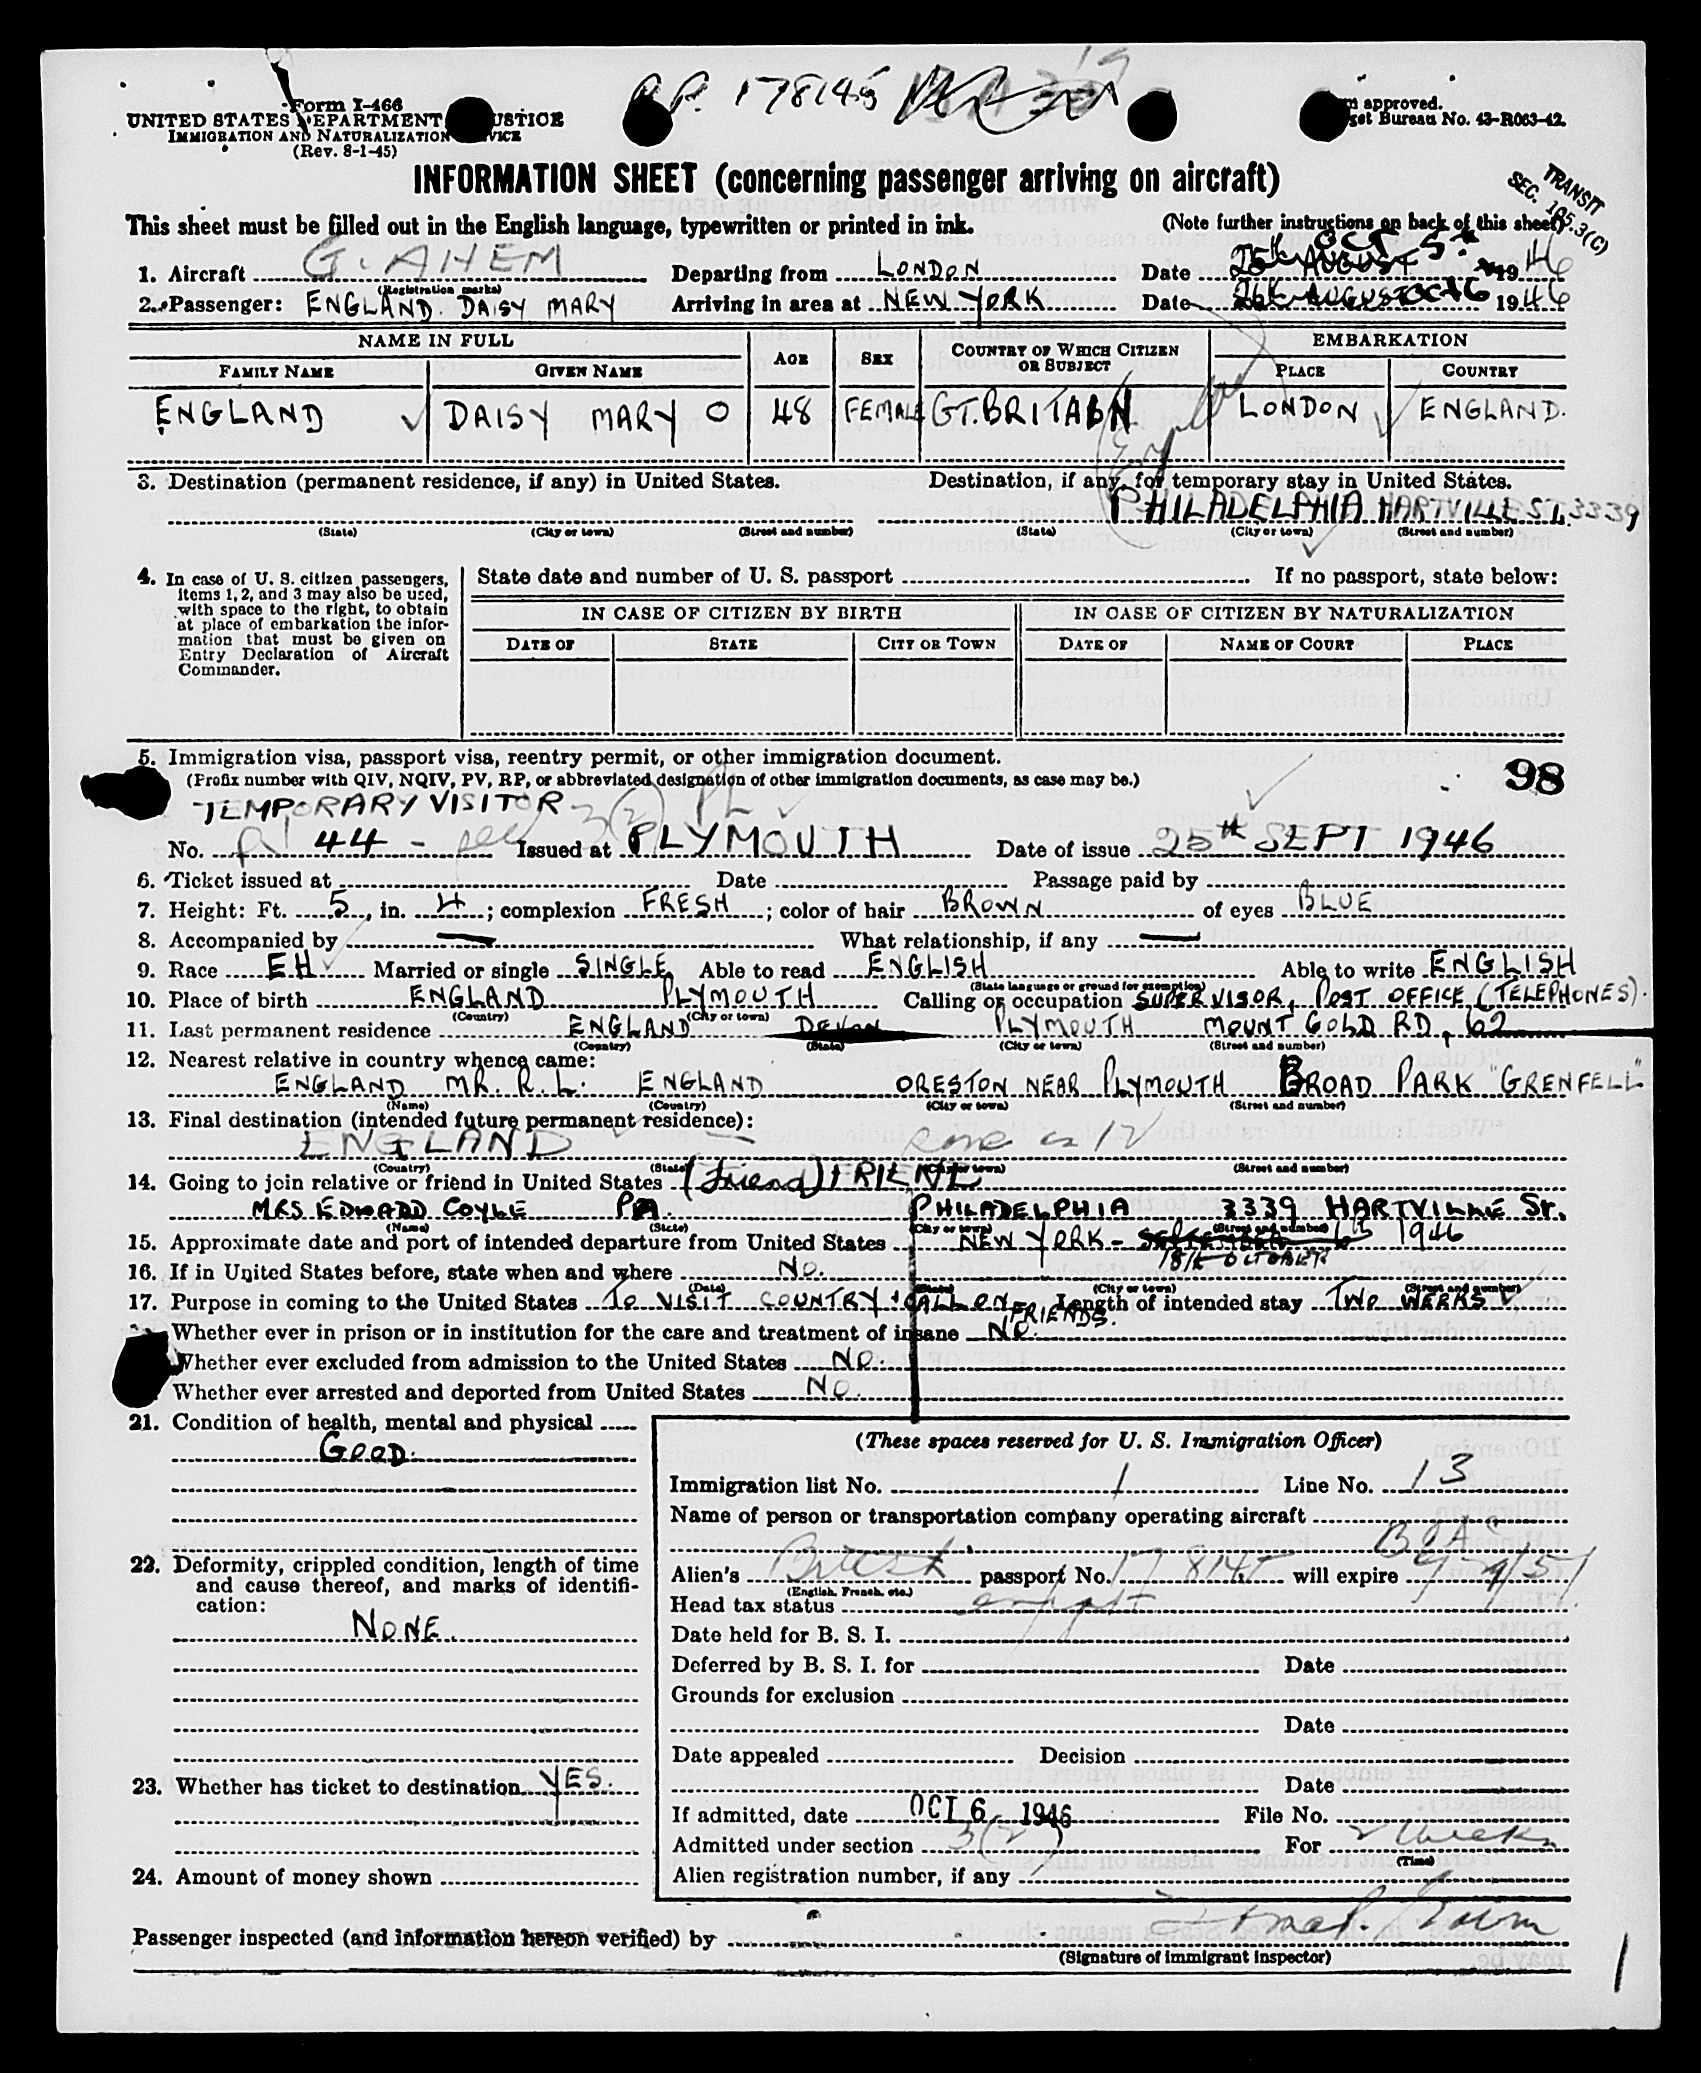 P.P. 178145
Form I-466
UNITED STATES DEPARTMENT JUSTICE
IMMIGRATION AND NATURALIZATION SERVICE
(Rev. 8-1-45)
approved.
Budget Bureau No. 43-R063-42.
INFORMATION SHEET (concerning passenger arriving on aircraft)
TRANSIT
SEC. 105.3(C)
This sheet must be filled out in the English language, typewritten or printed in ink. (Note further instructions on back of this sheet)
1. Aircraft G. AHEM Departing from LONDON Date 25th AUGUST OCT 5th 1946
(Registration marks)
2. Passenger: ENGLAND. DAISY MARY Arriving in area at NEW YORK Date 26th AUGUST OCT 6 1946
NAME IN FULL AGE SEX COUNTRY OF WHICH CITIZEN OR SUBJECT EMBARKATION
FAMILY NAME GIVEN NAME PLACE COUNTRY
ENGLAND DAISY MARY O 48 FEMALE GT. BRITAIN LONDON ENGLAND.
3. Destination (permanent residence, if any) in United States. Destination, if any, for temporary stay in United States.
PHILADELPHIA HARTVILLE St. 3339
(State) (City or town) (Street and number) (State) (City or town) (Street and number)
4. In case of U. S. citizen passengers, items 1, 2, and 3 may also be used, with space to the right, to obtain at place of embarkation the information that must be given on Entry Declaration of Aircraft Commander.
State date and number of U. S. passport If no passport, state below:
IN CASE OF CITIZEN BY BIRTH IN CASE OF CITIZEN BY NATURALIZATION
DATE OF STATE CITY OR TOWN DATE OF NAME OF COURT PLACE
5. Immigration visa, passport visa, reentry permit, or other immigration document.
(Prefix number with QIV, NQIV, PV, RP, or abbreviated designation of other immigration documents, as case may be.)
98
TEMPORARY VISITOR 3(2)
No. 44 - Issued at PLYMOUTH Date of issue 25th SEPT 1946
6. Ticket issued at Date Passage paid by
7. Height: Ft. 5, in. 4; complexion FRESH; color of hair BROWN of eyes BLUE
8. Accompanied by — What relationship, if any —
9. Race EH Married or single SINGLE Able to read ENGLISH Able to write ENGLISH
(State language or ground for exemption)
10. Place of birth ENGLAND PLYMOUTH Calling or occupation SUPERVISOR, POST OFFICE (TELEPHONES).
(Country) (City or town)
11. Last permanent residence ENGLAND DEVON PLYMOUTH MOUNT GOLD RD, 62
(Country) (State) (City or town) (Street and number)
12. Nearest relative in country whence came:
ENGLAND MR. R. L. ENGLAND ORESTON NEAR PLYMOUTH BROAD PARK "GRENFELL"
(Name) (Country) (City or town) (Street and number)
13. Final destination (intended future permanent residence):
ENGLAND —
(Country) (State) (City or town) (Street and number)
14. Going to join relative or friend in United States (Friend) FRIEND
MRS EDWARD COYLE PA. PHILADELPHIA 3339 HARTVILLE St.
(Name) (State) (City or town) (Street and number)
15. Approximate date and port of intended departure from United States NEW YORK - 1946
18th OCTOBER
16. If in United States before, state when and where NO.
(Date) (State) (City or town) (Street and number)
17. Purpose in coming to the United States TO VISIT COUNTRY & CALL ON FRIENDS. Length of intended stay TWO WEEKS
Whether ever in prison or in institution for the care and treatment of insane NO.
Whether ever excluded from admission to the United States NO.
Whether ever arrested and deported from United States NO.
21. Condition of health, mental and physical
GOOD.
22. Deformity, crippled condition, length of time and cause thereof, and marks of identification:
NONE.
23. Whether has ticket to destination YES.
24. Amount of money shown
(These spaces reserved for U. S. Immigration Officer)
Immigration list No. 1 Line No. 13
Name of person or transportation company operating aircraft
BOAC
Alien's British passport No. 178145 will expire
(English, French, etc.)
Head tax status exempt
Date held for B. S. I.
Deferred by B. S. I. for Date
Grounds for exclusion
Date
Date appealed Decision
Date
If admitted, date OCT 6 1946 File No.
Admitted under section 3(2) For 2 weeks
(Time)
Alien registration number, if any
Passenger inspected (and information hereon verified) by
(Signature of immigrant inspector)
1